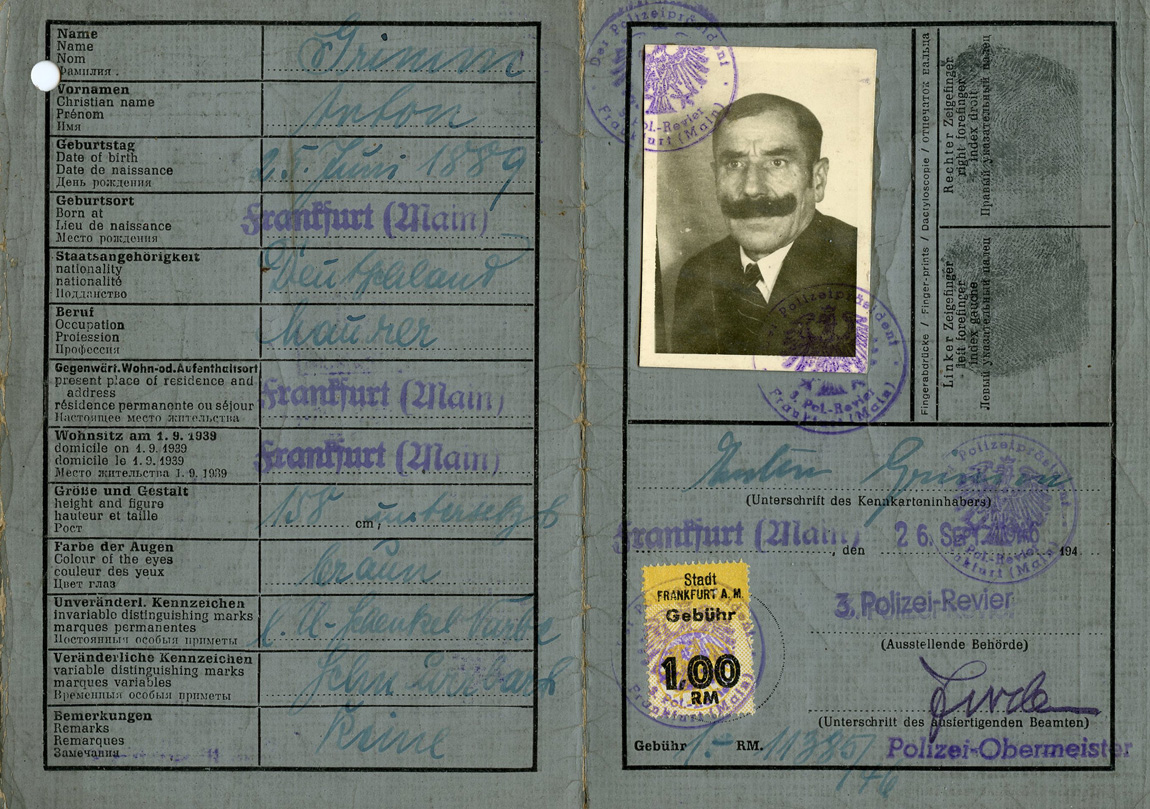 Name
Name
Nom
Фамилия .
Grimm
Vornamen
Christian name
Prénom
Имя
Anton
Geburtstag
Date of birth
Date de naissance
День рождения
25. Juni 1889
Geburtsort
Born at
Lieu de naissance
Место рождения
Frankfurt (Main)
Staatsangehörigkeit
nationality
nationalité
Подданство
Deutschland
Beruf
Occupation
Profession
Профессия
Maurer
Gegenwärt. Wohn-od. Aufenthaltsort
present place of residence and
address
résidence permanente ou séjour
Настоящее место жительства
Frankfurt (Main)
Wohnsitz am 1. 9. 1939
domicile on 1. 9. 1939
domicile le 1. 9. 1939
Место жительства 1. 9. 1939
Frankfurt (Main)
Größe und Gestalt
height and figure
hauteur et taille
Рост
158 cm, untersetzt
Farbe der Augen
Colour of the eyes
couleur des yeux
Цвет глаз
braun
Unveränderl. Kennzeichen
invariable distinguishing marks
marques permanentes
Постоянныи особыя приметы
Veränderliche Kennzeichen
variable distinguishing marks
marques variables
Временныя особыя приметы
Schnurrbart
Bemerkungen
Remarks
Remarques
Замечания
Keine
Der Polizeipräsident
3. Pol.-Revier
Frankfurt (Main)
Der Polizeipräsident
3. Pol.-Revier
Frankfurt (Main)
Fingerabdrücke / Finger-prints / Dactyloscopie / отпечаток пальца
Rechter Zeigefinger
right forefinger
index droit
Правый указательный палец
Linker Zeigefinger
left forefinger
index gauche
Левый указательный палец
Anton Grimm
(Unterschrift des Kennkarteninhabers)
Polizeipräsident
Pol.-Revier
Frankfurt (Main)
Frankfurt (Main), den 26. Sep. 1946 194
3. Polizei-Revier
(Ausstellende Behörde)
Stadt
FRANKFURT A. M.
Gebühr
1,00
RM
(Unterschrift des ausfertigenden Beamten)
Gebühr 1.- RM.
Polizei-Obermeister